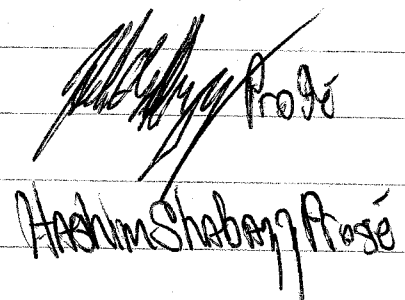 Pro Sé
Hashim Shabazz Prosé